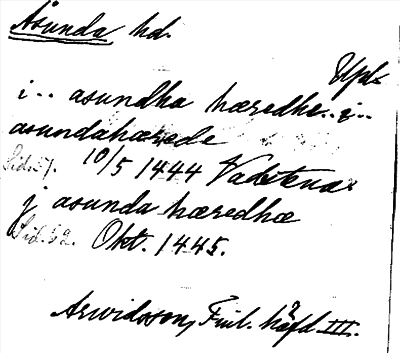 Åsunda hd.
Upl.
i.. asundha hæredhe.. i..
asundahærede
Sid. 51. 10/5 1444 Vadstena
j asunda hæredhæ
Sid. 52. Okt. 1445.
Arwidsson, Finl. häfd III.